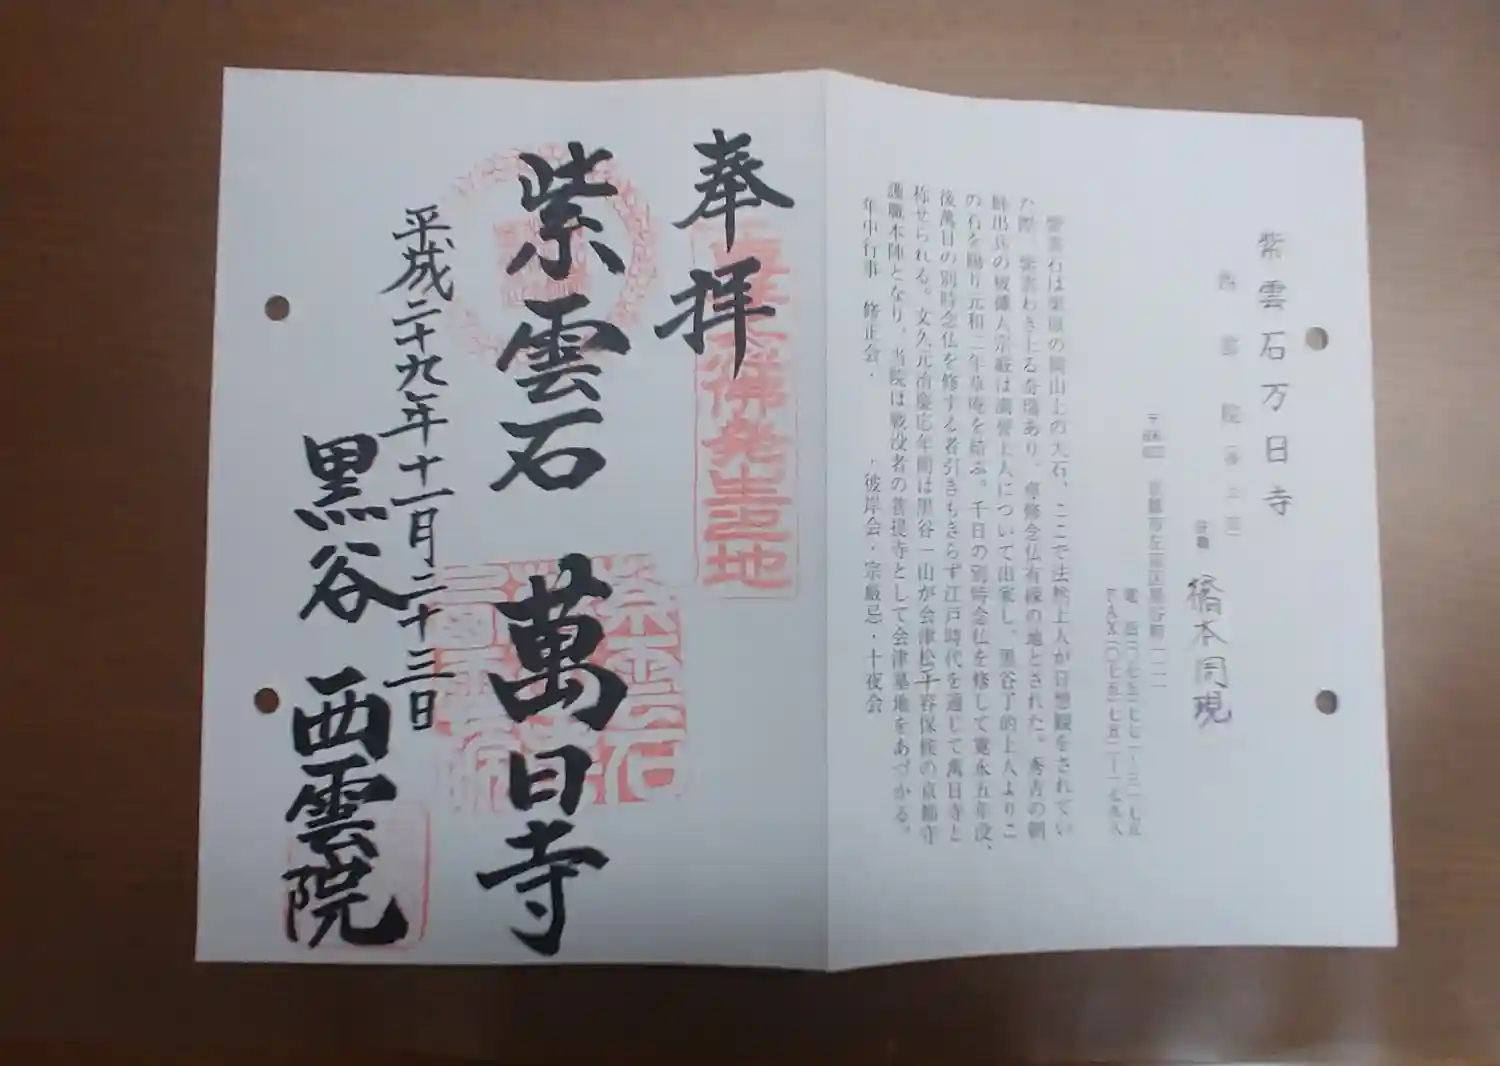 紫雲石万日寺
西雲院
橋本周現
電話(〇七五)七七一-三一七五
FAX(〇七五)七五二-一九九八
紫雲石は栗原の岡山上の大石、ここで法然上人が日想観をされてい
た際、紫雲わき上る奇瑞あり、専修念仏有縁の地とされた。秀吉の朝
鮮出兵の
の石を賜り元和二年草庵を結ぶ。千日の別時念仏を修して寛永五年没、
後萬日の別時念仏を修する者引きもきらず江戸時代を通じて萬日寺と
称せられる。文久元治慶応年間は黒谷一山が会津松平容保候の京都守
護職本陣となり、当院は戦没者の菩提寺として会津墓地をあづかる。
年中行事 修正会・ ・彼岸会・宗厳忌・十夜会
奉拝
紫雲石 萬日寺
平成二十九年十一月二十三日
黒谷 西雲院